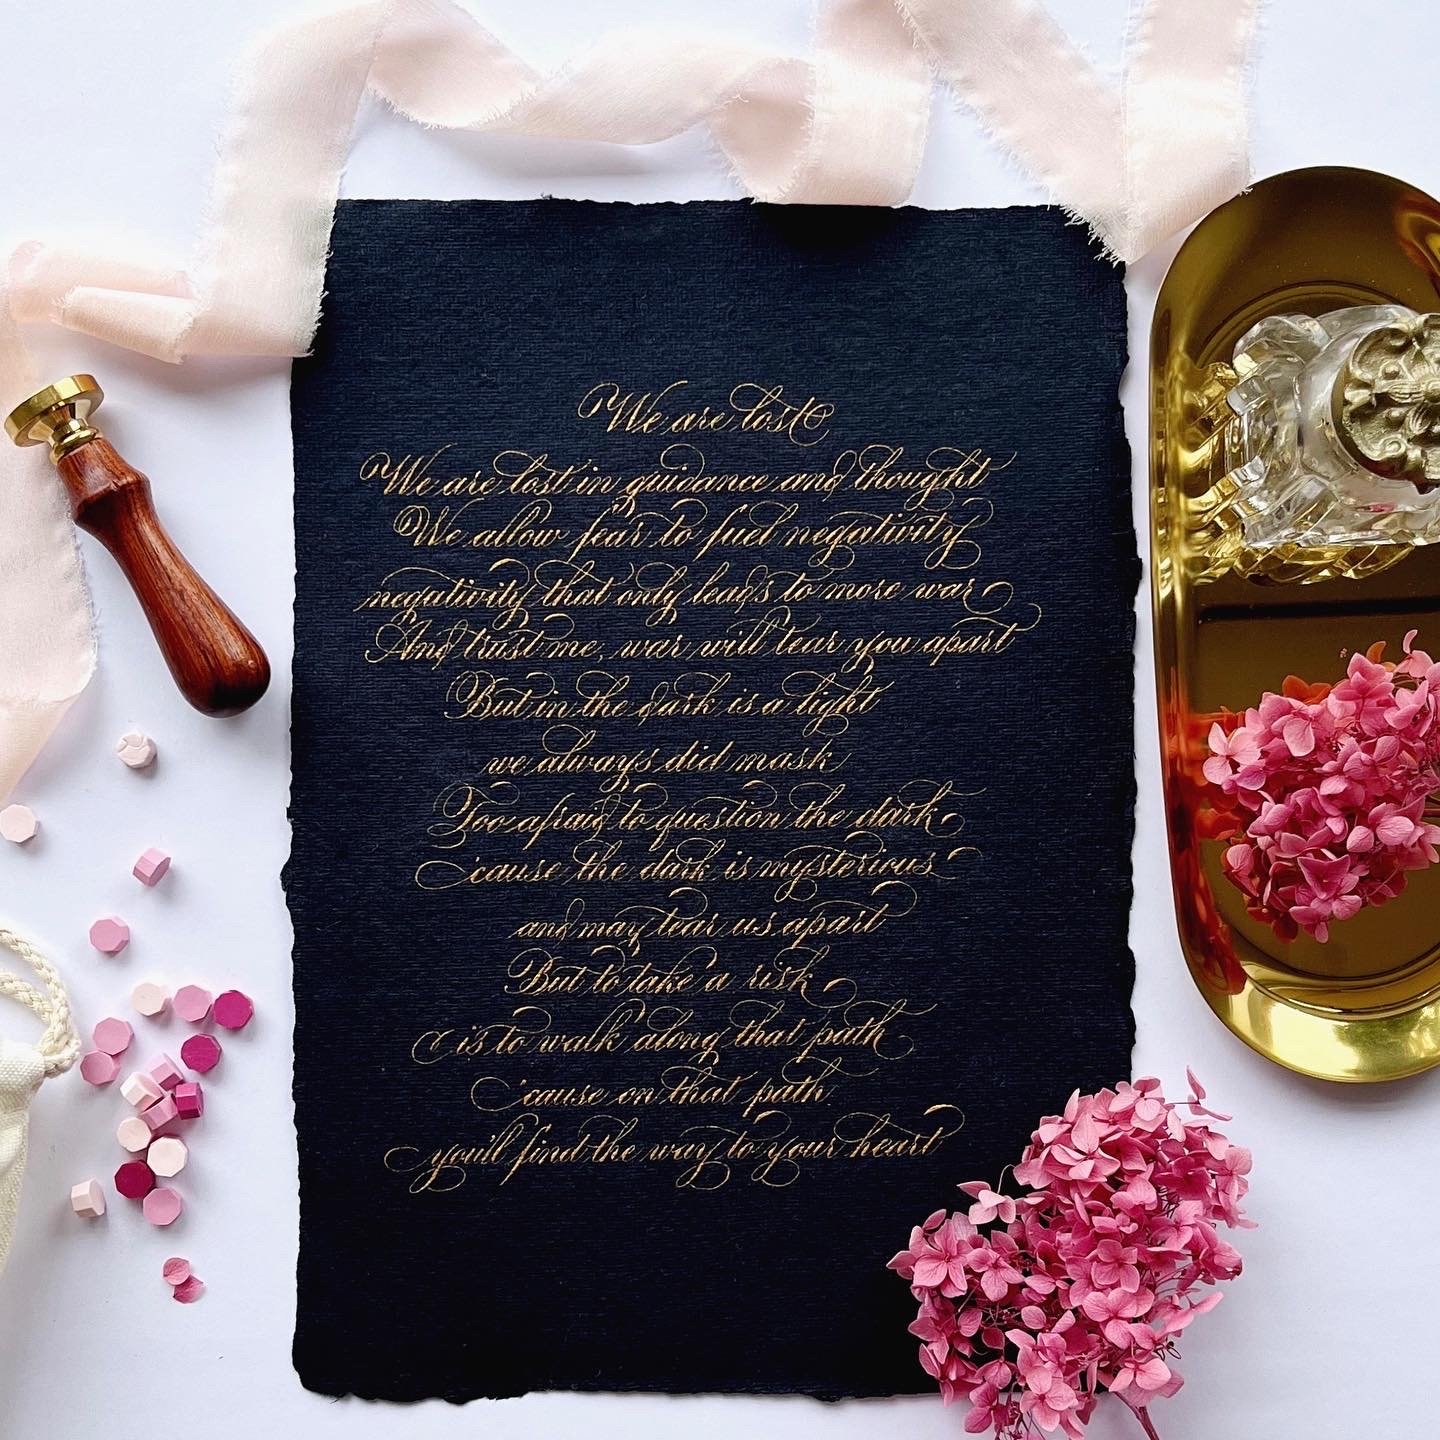 We are lost
We are lost in guidance and thought
We allow fear to fuel negativity
negativity that only leads to more war
And trust me, war will tear you apart
But in the dark is a light
we always did mask
Too afraid to question the dark
'cause the dark is mysterious
and may tear us apart
But to take a risk
is to walk along that path
'cause on that path
you'll find the way to your heart